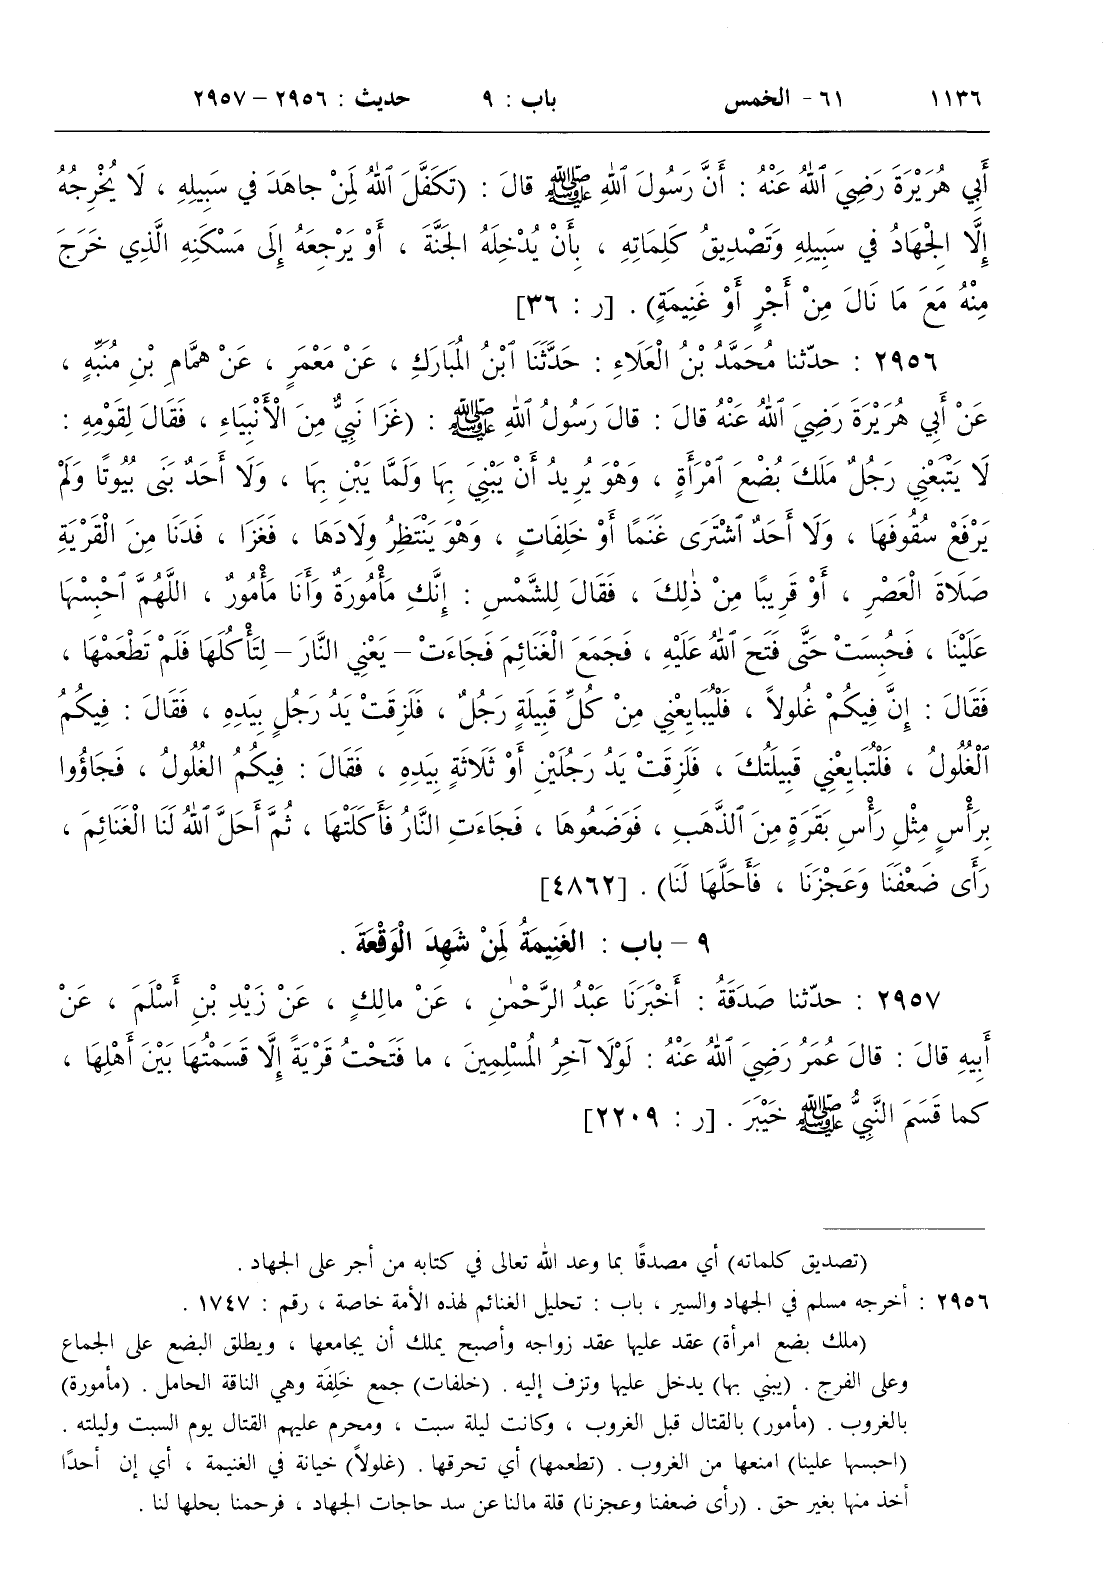 ١١٣٦ ٦١ - الخمس باب : ٩ حديث : ٢٩٥٦ – ٢٩٥٧
أَبِي هُرَيْرَةَ رَضِيَ ٱللهُ عَنْهُ : أَنَّ رَسُولَ ٱللهِ ﷺ قالَ : (تَكَفَّلَ ٱللهُ لِمَنْ جاهَدَ في سَبِيلِهِ ، لَا يُخْرِجُهُ
إِلَّا الْجِهَادُ في سَبِيلِهِ وَتَصْدِيقُ كَلِمَاتِهِ ، بِأَنْ يُدْخِلَهُ الجَنَّةَ ، أَوْ يَرْجِعَهُ إِلَى مَسْكَنِهِ الَّذِي خَرَجَ
مِنْهُ مَعَ مَا نَالَ مِنْ أَجْرٍ أَوْ غَنِيمَةٍ) . [ر : ٣٦]
٢٩٥٦ : حدّثنا مُحَمَّدُ بْنُ الْعَلَاءِ : حَدَّثَنَا ٱبْنُ المُبَارَكِ ، عَنْ مَعْمَرٍ ، عَنْ هَمَّامِ بْنِ مُنَبِّهٍ ،
عَنْ أَبِي هُرَيْرَةَ رَضِيَ ٱللهُ عَنْهُ قالَ : قالَ رَسُولُ ٱللهِ ﷺ : (غَزَا نَبِيٌّ مِنَ الْأَنْبِيَاءِ ، فَقَالَ لِقَوْمِهِ :
لَا يَتْبَعْنِي رَجُلٌ مَلَكَ بُضْعَ ٱمْرَأَةٍ ، وَهْوَ يُرِيدُ أَنْ يَبْنِيَ بِهَا وَلَمَّا يَبْنِ بِهَا ، وَلَا أَحَدٌ بَنَى بُيُوتًا وَلَمْ
يَرْفَعْ سُقُوفَهَا ، وَلَا أَحَدٌ ٱشْتَرَى غَنَمًا أَوْ خَلِفَاتٍ ، وَهْوَ يَنْتَظِرُ وِلَادَهَا ، فَغَزَا ، فَدَنَا مِنَ الْقَرْيَةِ
صَلَاةَ الْعَصْرِ ، أَوْ قَرِيبًا مِنْ ذٰلِكَ ، فَقَالَ لِلشَّمْسِ : إِنَّكِ مَأْمُورَةٌ وَأَنَا مَأْمُورٌ ، اللَّهُمَّ ٱحْبِسْهَا
عَلَيْنَا ، فَحُبِسَتْ حَتَّى فَتَحَ ٱللهُ عَلَيْهِ ، فَجَمَعَ الْغَنَائِمَ فَجَاءَتْ – يَعْنِي النَّارَ – لِتَأْكُلَهَا فَلَمْ تَطْعَمْهَا ،
فَقَالَ : إِنَّ فِيكُمْ غُلولاً ، فَلْيُبَايِعْنِي مِنْ كُلِّ قَبِيلَةٍ رَجُلٌ ، فَلَزِقَتْ يَدُ رَجُلٍ بِيَدِهِ ، فَقَالَ : فِيكُمُ
الْغُلُولُ ، فَلْتُبَايِعْنِي قَبِيلَتُكَ ، فَلَزِقَتْ يَدُ رَجُلَيْنِ أَوْ ثَلَاثَةٍ بِيَدِهِ ، فَقَالَ : فِيكُمُ الْغُلُولُ ، فَجَاؤُوا
بِرَأْسٍ مِثْلِ رَأْسِ بَقَرَةٍ مِنَ الذَّهَبِ ، فَوَضَعُوهَا ، فَجَاءَتِ النَّارُ فَأَكَلَتْهَا ، ثُمَّ أَحَلَّ ٱللهُ لَنَا الْغَنَائِمَ ،
رَأَى ضَعْفَنَا وَعَجْزَنَا ، فَأَحَلَّهَا لَنَا) . [٤٨٦٢]
٩ – باب : الغَنِيمَةُ لِمَنْ شَهِدَ الْوَقْعَةَ .
٢٩٥٧ : حدّثنا صَدَقَةُ : أَخْبَرَنَا عَبْدُ الرَّحْمٰنِ ، عَنْ مالِكٍ ، عَنْ زَيْدِ بْنِ أَسْلَمَ ، عَنْ
أَبِيهِ قالَ : قالَ عُمَرُ رَضِيَ ٱللهُ عَنْهُ : لَوْلَا آخِرُ المُسْلِمِينَ ، ما فَتَحْتُ قَرْيَةً إِلَّا قَسَمْتُهَا بَيْنَ أَهْلِهَا ،
كما قَسَمَ النَّبِيُّ ﷺ خَيْبَرَ . [ر : ٢٢٠٩]
(تصديق كلماته) أي مصدقًا بما وعد الله تعالى في كتابه من أجر على الجهاد .
٢٩٥٦ : أخرجه مسلم في الجهاد والسير ، باب : تحليل الغنائم لهذه الأمة خاصة ، رقم : ١٧٤٧ .
(ملك بضع امرأة) عقد عليها عقد زواجه وأصبح يملك أن يجامعها ، ويطلق البضع على الجماع
وعلى الفرج . (يبني بها) يدخل عليها وتزف إليه . (خلفات) جمع خَلِفَة وهي الناقة الحامل . (مأمورة)
بالغروب . (مأمور) بالقتال قبل الغروب ، وكانت ليلة سبت ، ومحرم عليهم القتال يوم السبت وليلته .
(احبسها علينا) امنعها من الغروب . (تطعمها) أي تحرقها . (غلولاً) خيانة في الغنيمة ، أي إن أحدًا
أخذ منها بغير حق . (رأى ضعفنا وعجزنا) قلة مالنا عن سد حاجات الجهاد ، فرحمنا بحلها لنا .